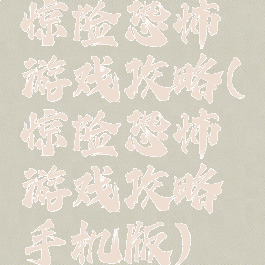 惊险恐怖
游戏攻略(
惊险恐怖
游戏攻略
手机版)